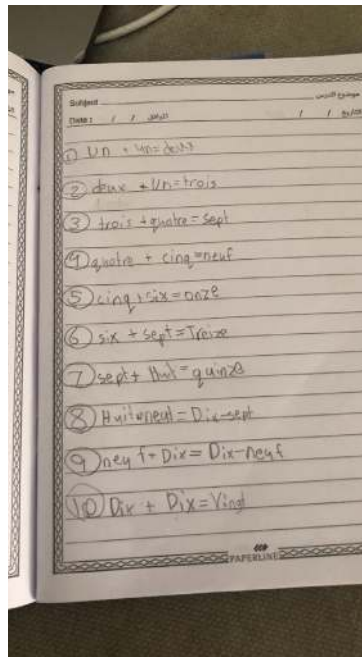 Subject
موضوع الدرس
Date : / / الموافق / / التاريخ
1) Un + Un = deux
2) deux + Un = trois
3) trois + quatre = sept
4) quatre + cinq = neuf
5) cinq + six = onze
6) six + sept = Treize
7) sept + Huit = quinze
8) Huit + neuf = Dix-sept
9) neuf + Dix = Dix-neuf
10) Dix + Dix = Vingt
PAPERLINE